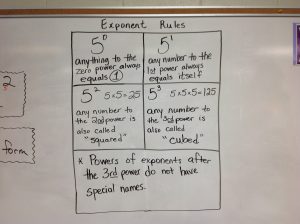 Exponent Rules
5⁰
anything to the
zero power always
equals 1
5¹
any number to the
1st power always
equals itself
5² 5x5=25
any number to
the 2nd power is
also called
"squared"
5³ 5x5x5=125
any number to
the 3rd power is
also called
"cubed"
* Powers of exponents after
the 3rd power do not have
special names.
2
form